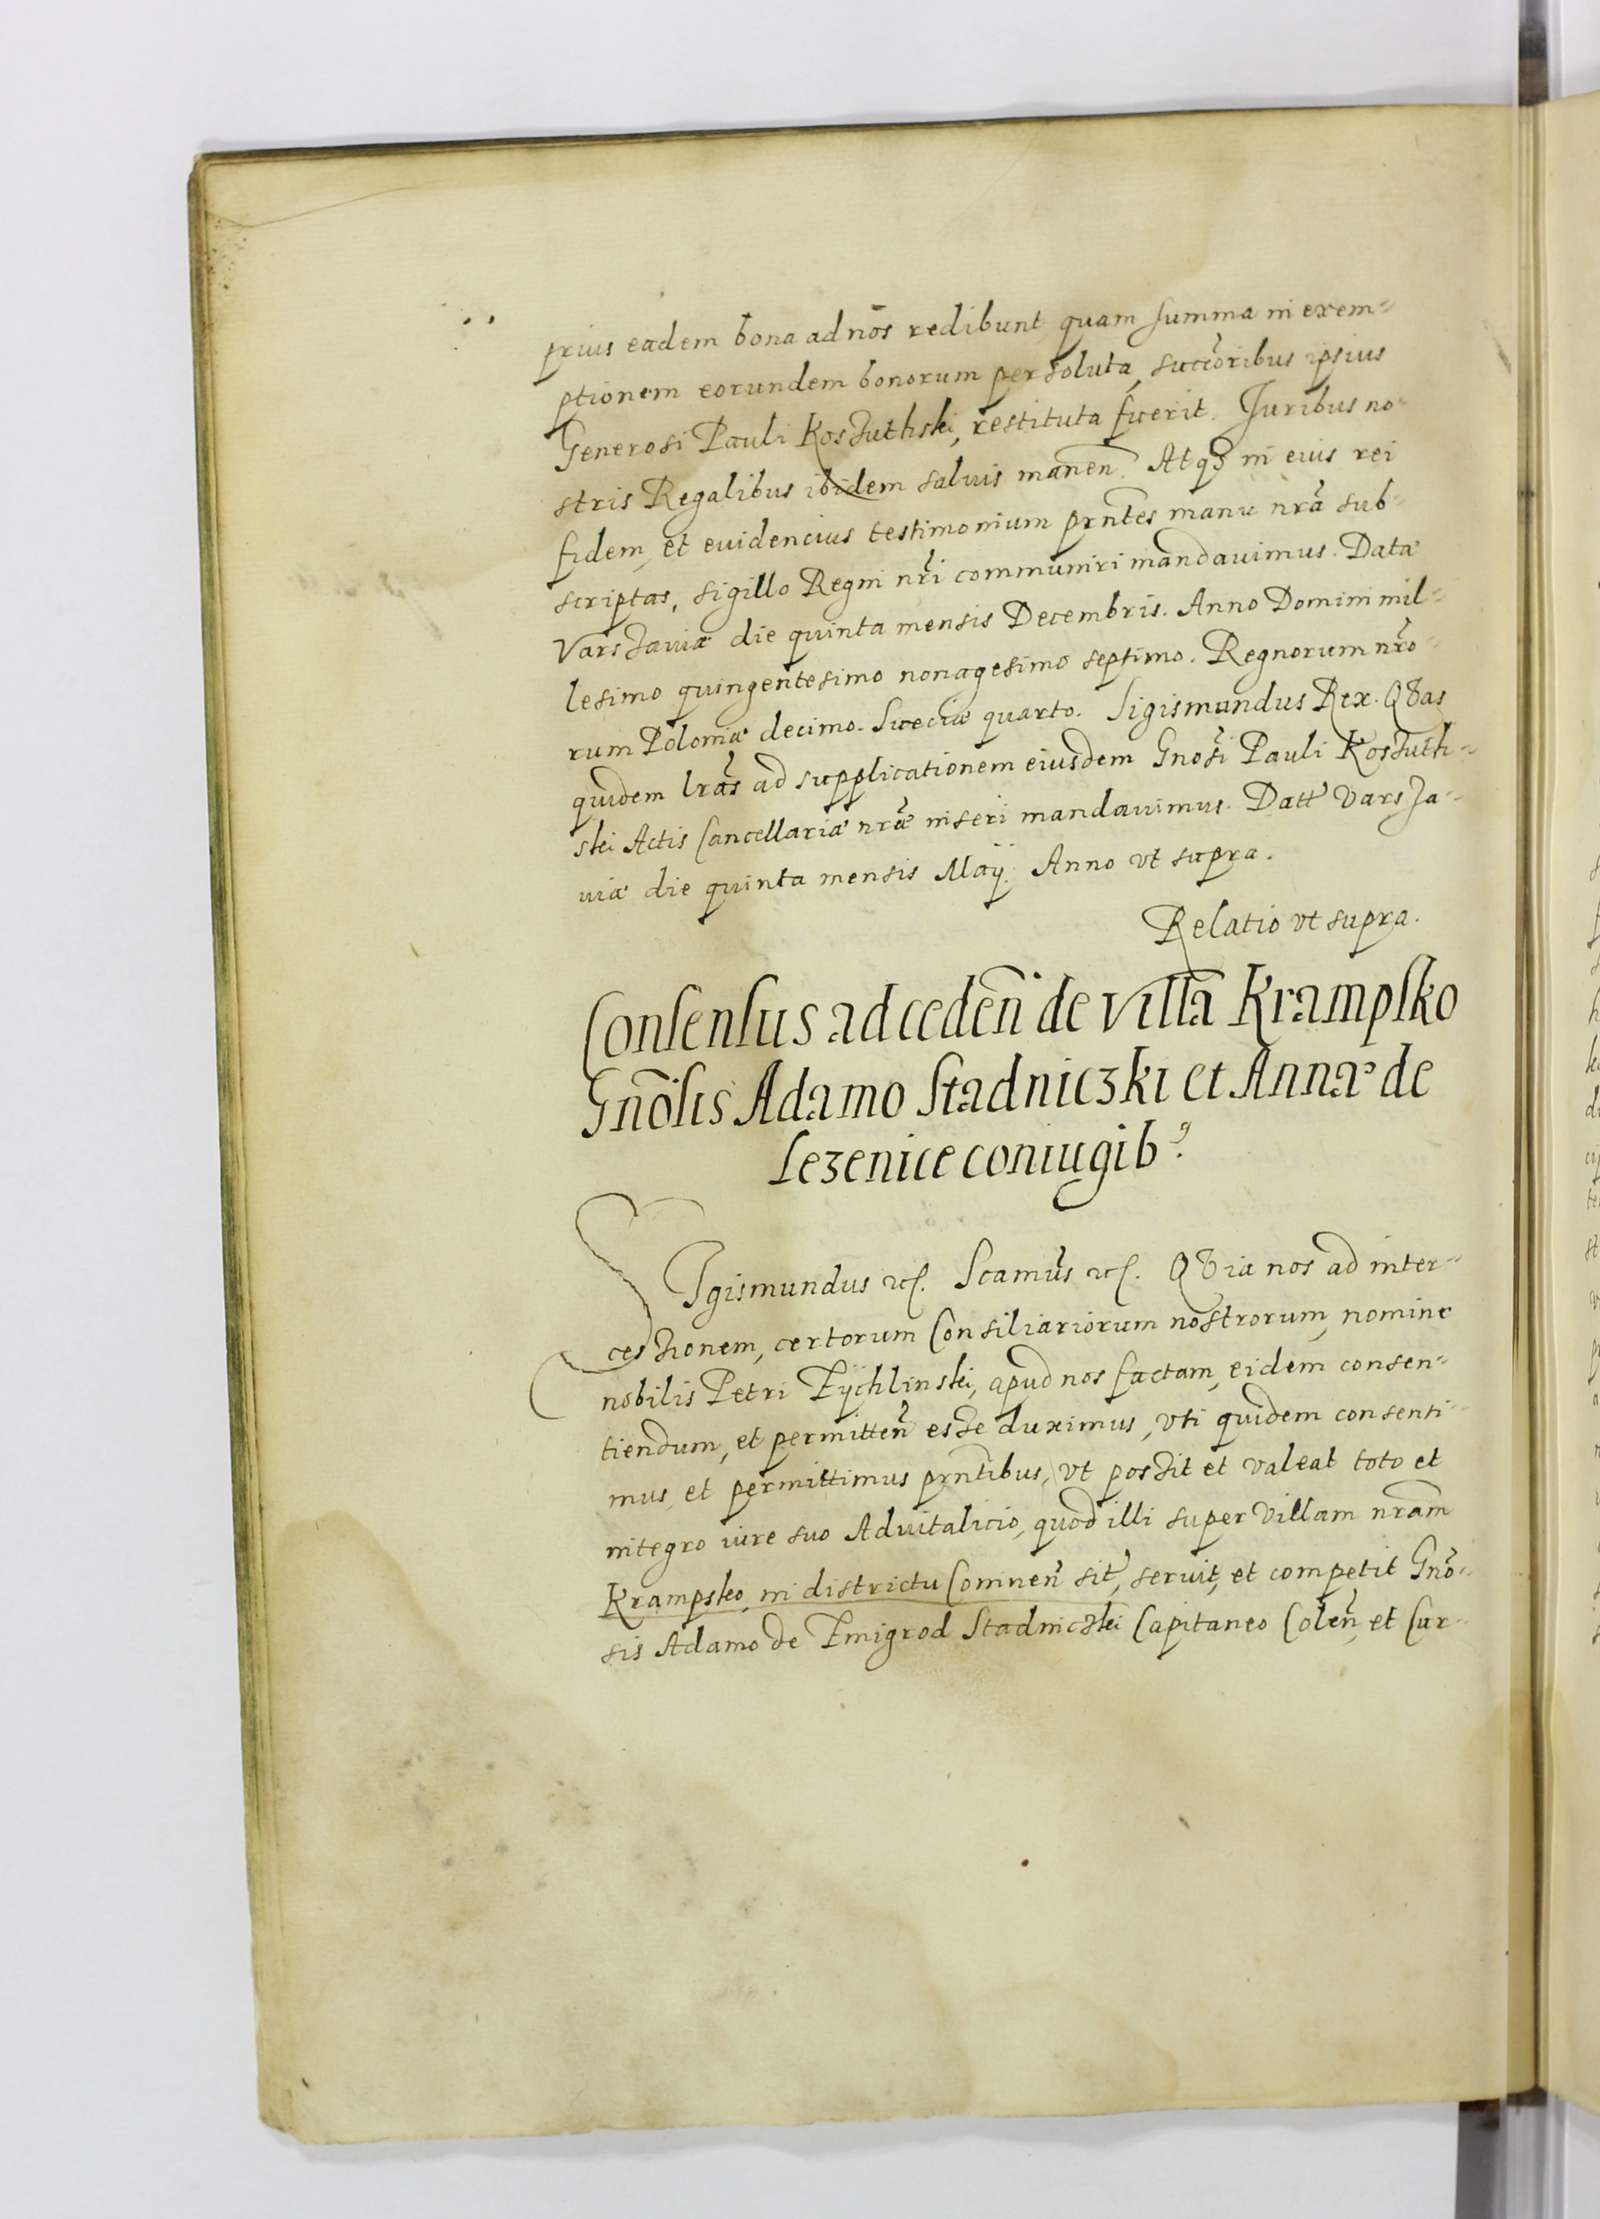 prius eadem bona ad nos redibunt quam summa in exem-
ptionem eorundem bonorum persoluta, succoribus ipsius
Generosi Pauli Koszuthski, restituta fuerit. Iuribus no-
stris Regalibus ibidem saluis manen. Atqꝫ in eius rei
fidem, et euidencius testimonium prntes manu nra sub-
scriptas, sigillo Regni nri communiri mandauimus. Datæ
Varszauiæ die quinta mensis Decembris. Anno Domini mil-
lesimo quingentesimo nonagesimo septimo. Regnorum nro-
rum Poloniæ decimo. Sueciæ quarto. Sigismundus Rex. Quas
quidem lras ad supplicationem eiusdem Gnosi Pauli Koszuth-
ski Actis Cancellariæ nræ inseri mandauimus. Datt Varsza-
uiæ die quinta mensis Maij. Anno vt supra.
Relatio vt supra.
Consensus ad ceden de villa Krampsko
Gnosis Adamo Stadniczki et Annæ de
Lezenice coniugib9.
Sigismundus etc. Scamus etc. Quia nos ad inter-
cessionem, certorum Consiliariorum nostrorum, nomine
nobilis Petri Zychlinski, apud nos factam, eidem consen-
tiendum, et permitten esse duximus, vti quidem consenti-
mus, et permittimus prntibus, vt possit et valeat toto et
integro iure suo Aduitalicio, quod illi super villam nram
Krampsko, in districtu Comnen sit, seruit, et competit Gno-
sis Adamo de Zmigrod Stadniczki Capitaneo Colen, et Cur-